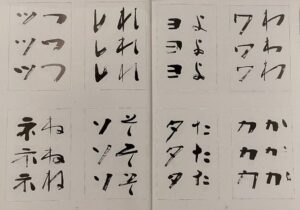 わわわ
ワワワ
かかか
カカカ
よよよ
ヨヨヨ
たたた
タタタ
れれれ
レレレ
そそそ
ソソソ
つつつ
ツツツ
ねねね
ネネネ